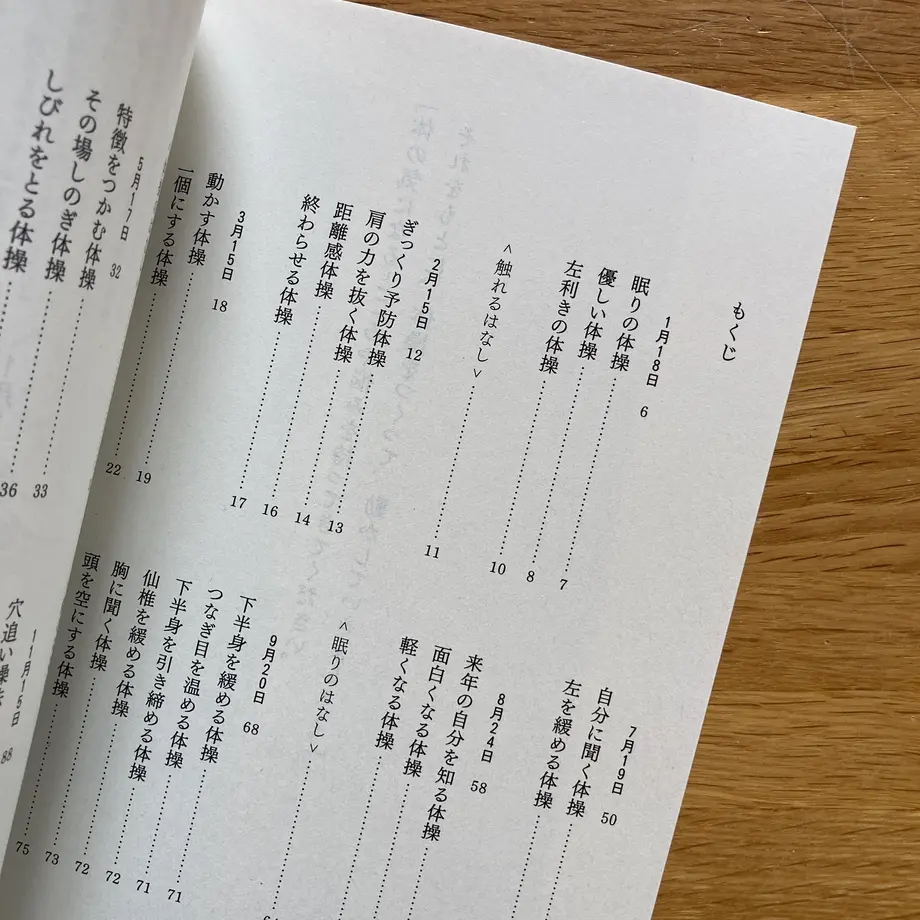 もくじ
1月18日 6
眠りの体操……7
優しい体操……8
左利きの体操……10
<触れるはなし>……11
2月15日 12
ぎっくり予防体操……13
肩の力を抜く体操……14
距離感体操……16
終わらせる体操……17
3月15日 18
動かす体操……19
一個にする体操……22
7月19日 50
自分に聞く体操……
左を緩める体操……
8月24日 58
来年の自分を知る体操……
面白くなる体操……
軽くなる体操……
<眠りのはなし>……
9月20日 68
下半身を緩める体操……71
つなぎ目を温める体操……71
下半身を引き締める体操……72
仙椎を緩める体操……72
胸に聞く体操……73
頭を空にする体操……75
5月17日 32
特徴をつかむ体操
その場しのぎ体操……33
しびれをとる体操……36
11月15日 88
穴追い